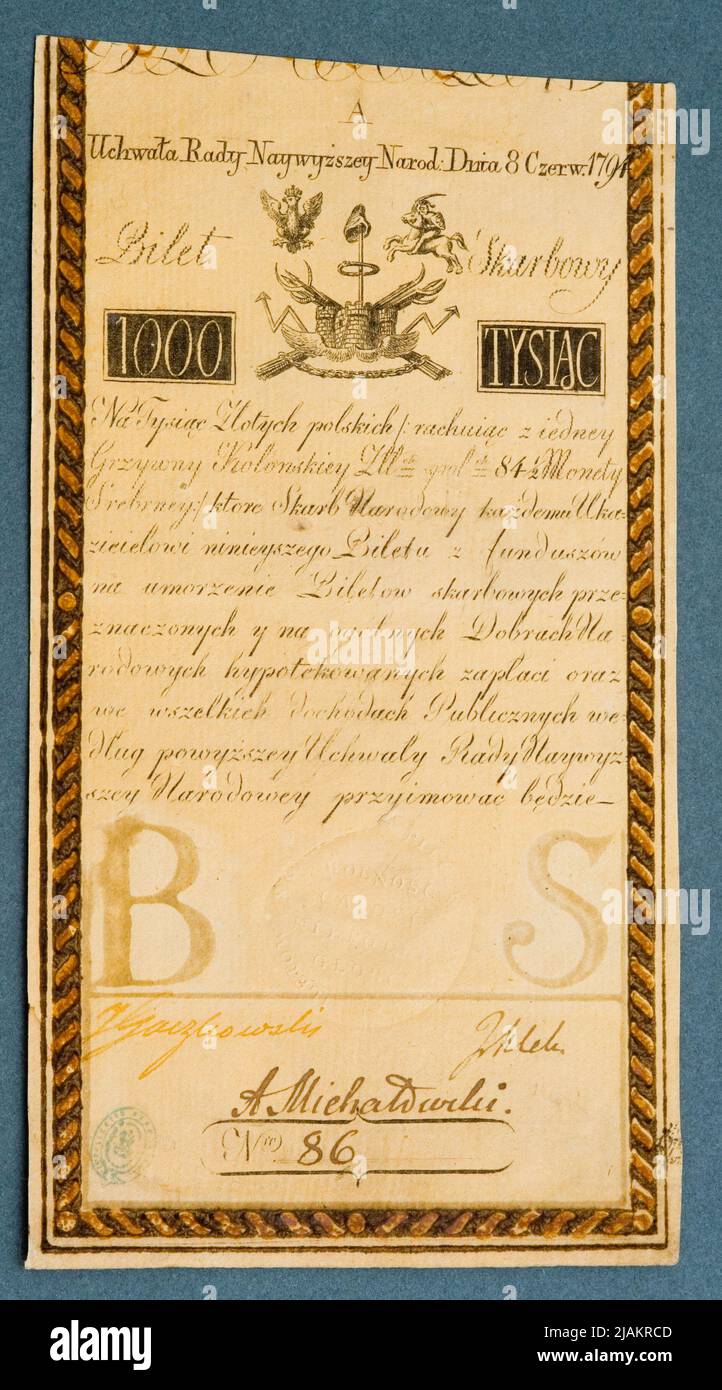 A
Uchwała Rady Naywyższey Narod: Dnia 8 Czerw. 1794
Bilet Skarbowy
1000 TYSIĄC
Na Tysiąc Złotych polskich /: rachuiąc z iedney
Grzywny Kolonskiey Zll 84½ Monety
Srebrney :/ ktore Skarb Narodowy każdemu Uka-
zicielowi ninieyszego Biletu z funduszów
na umorzenie Biletow skarbowych prze-
znaczonych y na ogolnych Dobrach Na-
rodowych hypotekowanych zapłaci oraz
we wszelkich dochodach Publicznych we-
dług powyższey Uchwały Rady Naywyż-
szey Narodowey przyimować będzie
B S
A Michałowski.
Nro 86
alamy
Image ID: 2JAKRCD
www.alamy.com